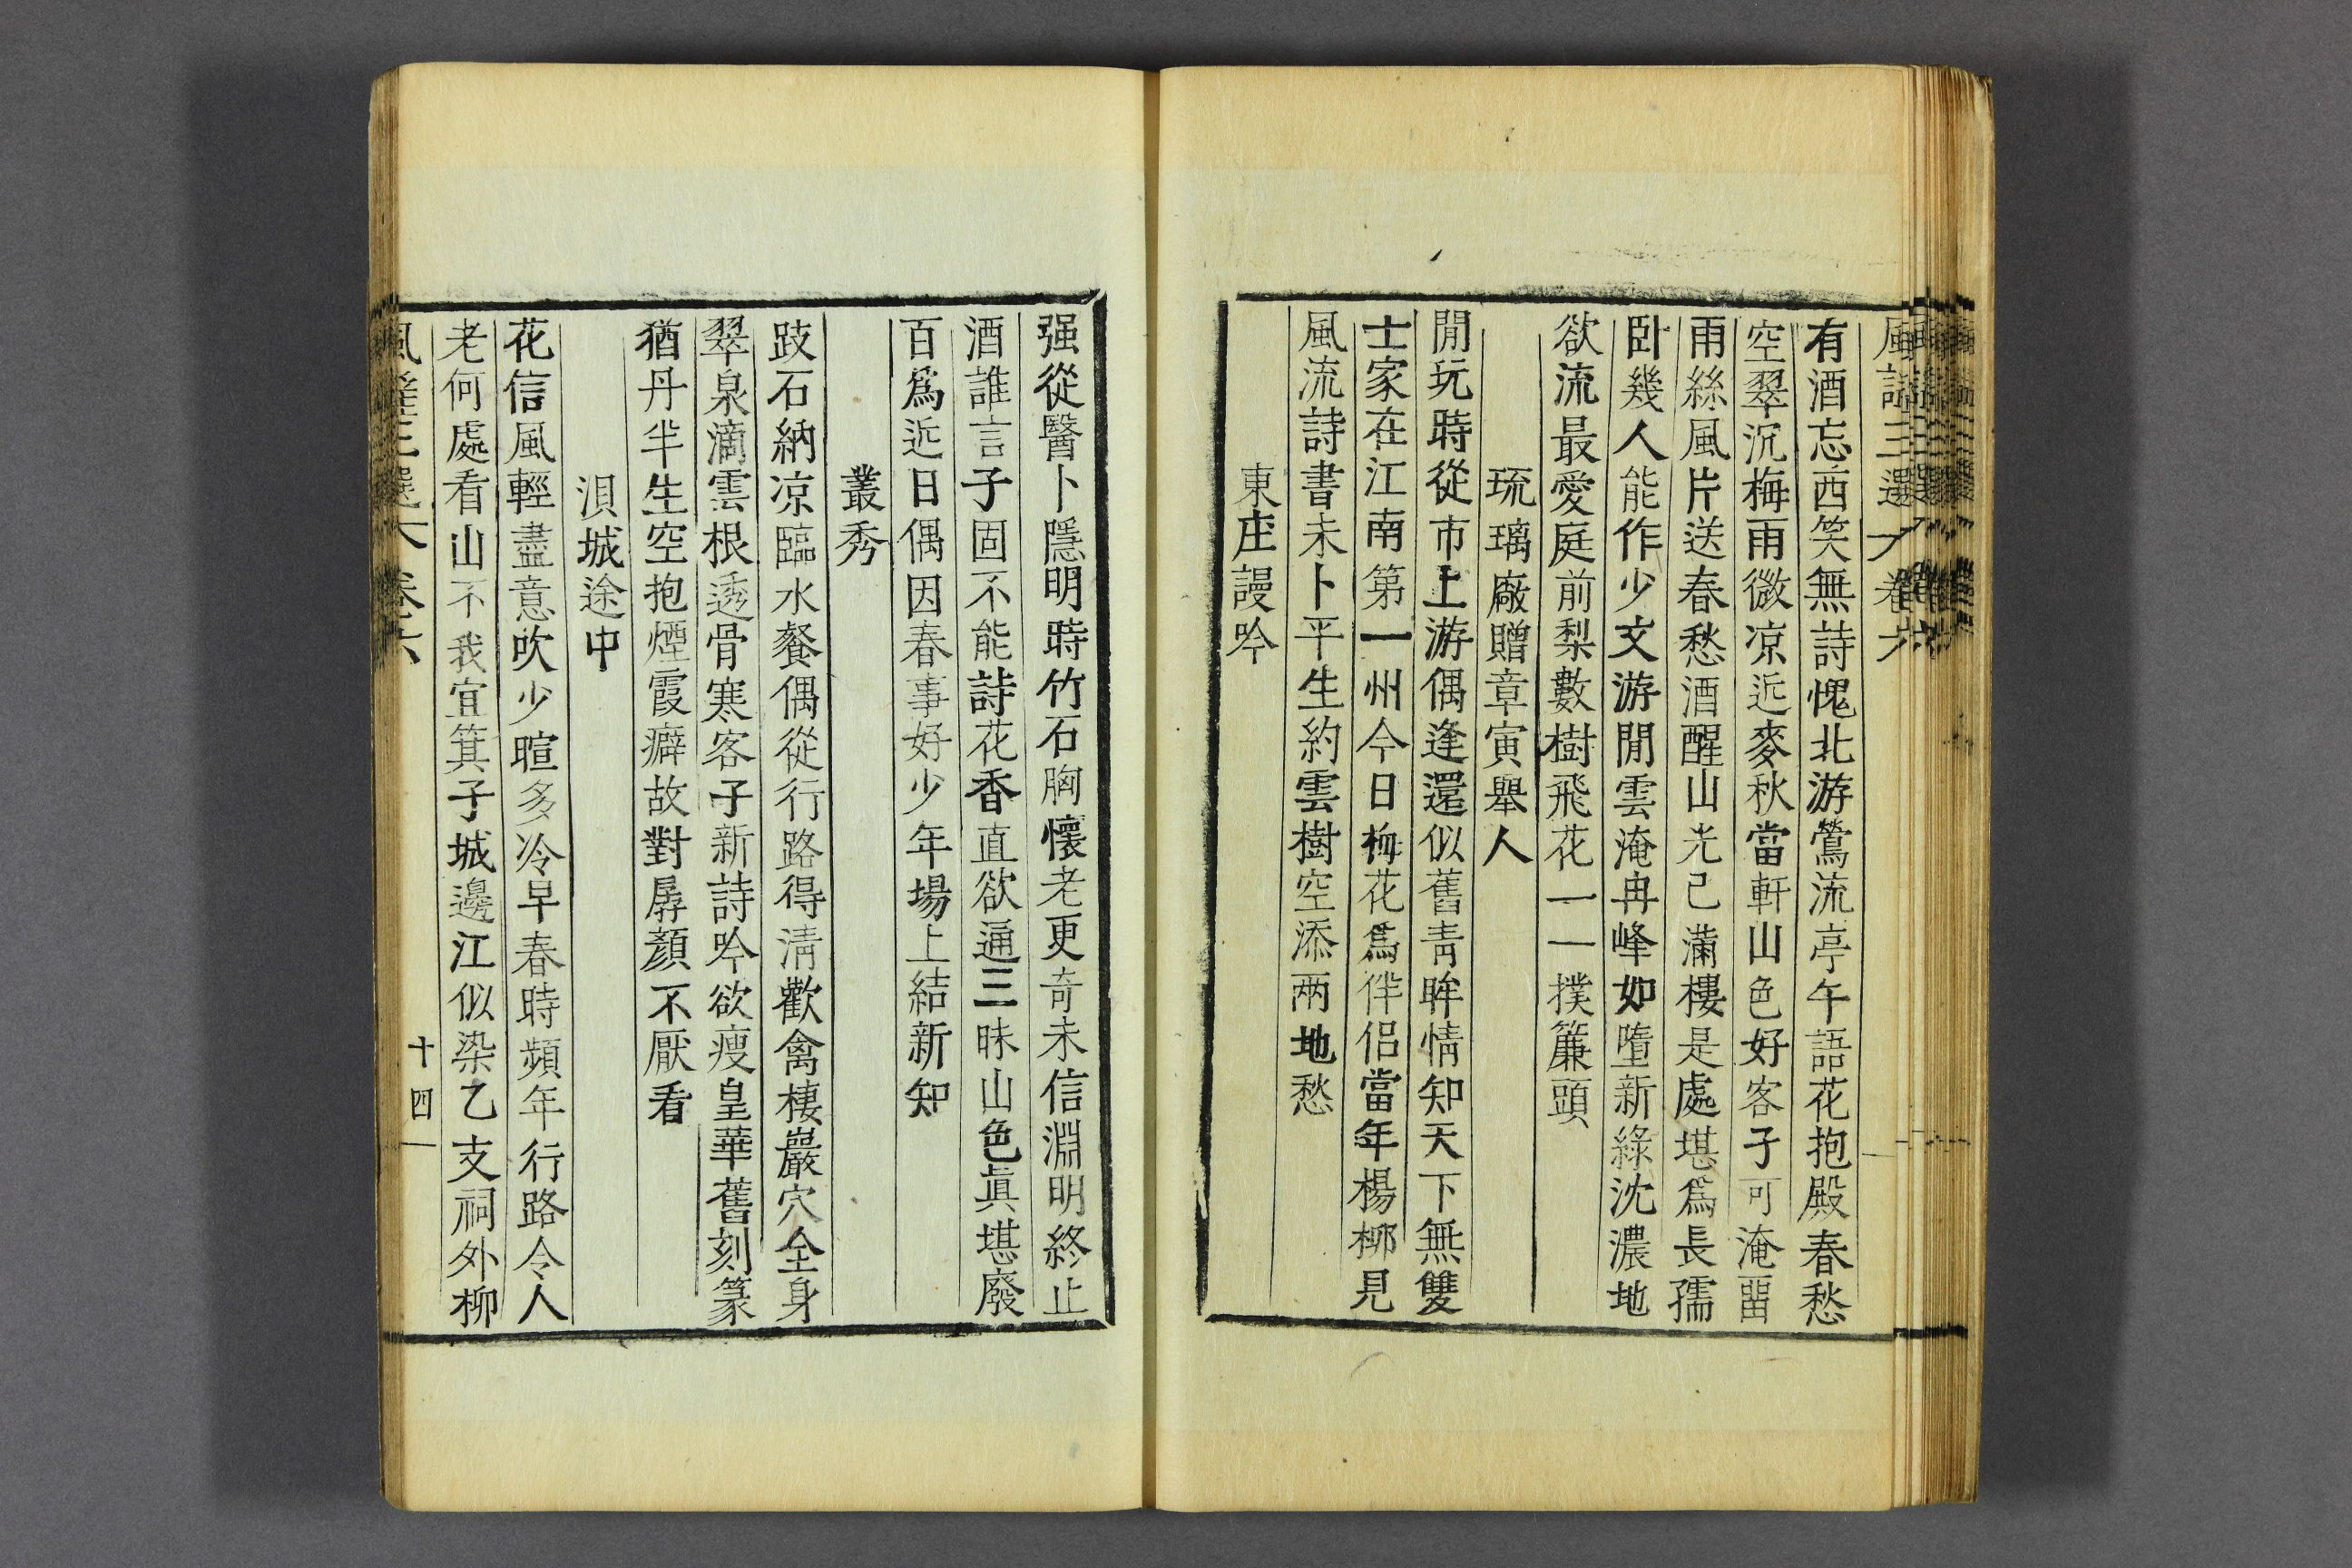 有酒忘西笑無詩愧北游鶯流亭午語花抱殿春愁
空翠沉梅雨微凉近麥秋當軒山色好客子可淹畱
雨絲風片送春愁酒醒山光已滿樓是處堪爲長孺
卧幾人能作少文游閒雲淹冉峰如墮新綠沈濃地
欲流最愛庭前梨數樹飛花一一撲簾頭
琉璃廠贈章寅舉人
閒玩時從市上游偶逢還似舊靑眸情知天下無雙
士家在江南第一州今日梅花爲伴侶當年楊柳見
風流詩書未卜平生約雲樹空添兩地愁
東庄謾吟
强從醫卜隱明時竹石胸懷老更奇未信淵明終止
酒誰言子固不能詩花香直欲通三昧山色眞堪廢
百爲近日偶因春事好少年場上結新知
叢秀
跂石納凉臨水餐偶從行路得淸歡禽棲巖穴全身
翠泉滴雲根透骨寒客子新詩吟欲瘦皇華舊刻篆
猶丹半生空抱煙霞癖故對孱顏不厭看
浿城途中
花信風輕盡意吹少暄多冷早春時頻年行路令人
老何處看山不我宜箕子城邊江似染乙支祠外柳
十四